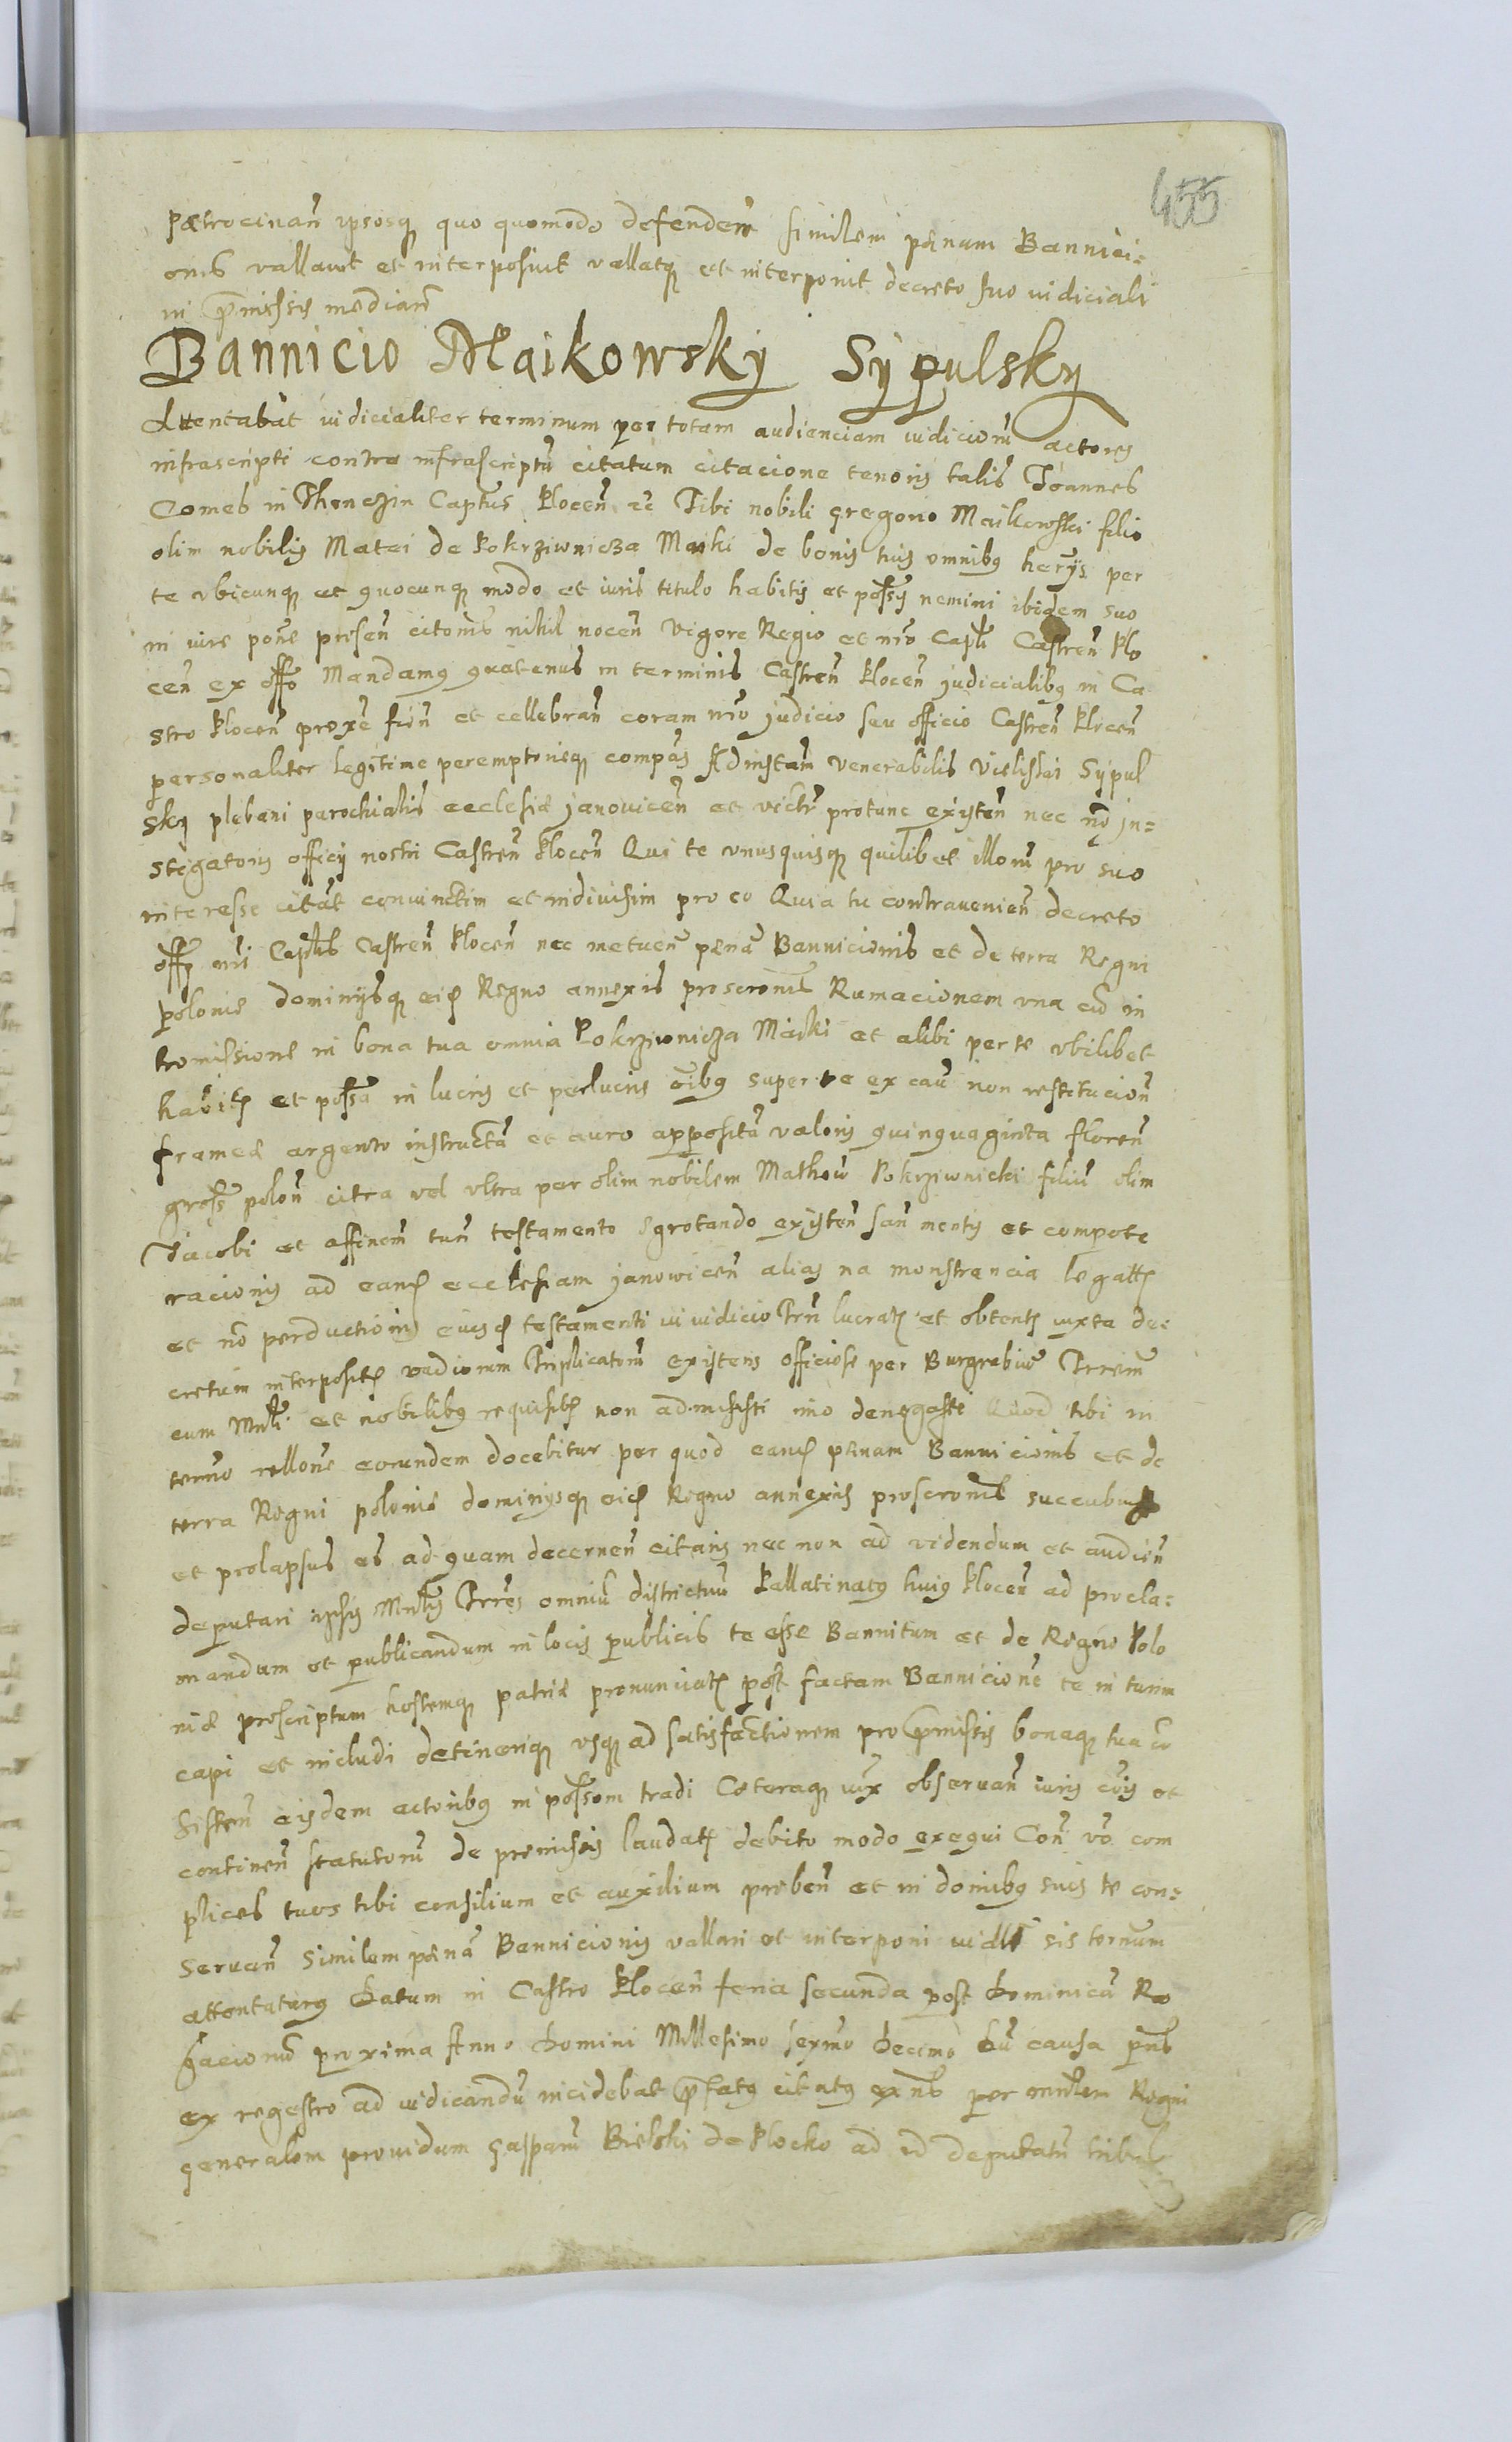 455
Patrocinan̄ ipsosq̨ quo quomodo defenden̄ similem pænam Bannici-
onis vallavit et interposuit vallatq̨ et interponit decreto suo iudiciali
in p̄missis median̄
Bannicio Maikowsky Sypulsky
Attentabāt iudicialiter terminum per totam audienciam iudiciorū actores
infrascripti contra infrascriptū citatum citacione tenoris talis Joannes
Comes in Thenczin Captūs Plocen̄ ec̄ Tibi nobili gregorio Maikowski filio
olim nobilis Matei de Pokrziwnicza Maiki de bonis tuis omnibq̨ herijs per
te vbicunq̨ et quocunq̨ modo et iuris titulo habitis et possīs nemini ibidem suo
in iure pone presen̄ citonis nihil nocen̄ Vigore Regio et nr̄o Captl̄i Castren̄ Plo
cen̄ ex offo Mandamq̨ quatenus in terminis Castren̄ Plocen̄ judicialibq̨ in Ca
stro Plocen̄ proxe fien̄ et cellebran̄ coram nr̄o judicio seu officio Castren̄ Plocen̄
personaliter legitime peremptorieq̨ compās Ad instam̄ venerabilis Vielislai Sypul
sky plebani parochialis ecclesiæ janovicen̄ et victr̄ protunc existen̄ nec nō jn-
stigatoris officij nostri Castren̄ Plocen̄ Qui te vnusquisq̨ quilibet illorū pro suo
interesse citāt coniunctim et indiuisim pro eo Quia tu contravenien̄ decreto
offi nr̄i Captl̄is Castren̄ Plocen̄ nec metuen̄ pænā Bannicionis et de terra Regni
polonie dominijsq̨ eid Regno annexis proscronis Rumacionem vna cū in
tromissione in bona tua omnia Pokrziwnicza Maiki et alibi per te vbilibet
habitꝭ et possa in lucris et perlucris oibq̨ super te ex caū non restitucion̄
frameæ argento instructā et auro appositā valoris quinquaginta floren̄
gross̄ polon̄ citra vel vltra per olim nobilem Matheū Pokrziwnicki filiū olim
Jacobi et affinem̄ tun̄ testamento egrotando existen̄ san̄ mentis et compote
racionis ad eand ecclesiam janowicen̄ alias na monstrancia legatꝭ
et nō perductionis eiusd testamenti in iudicio Trn̄ lucratꝭ et obtentꝭ iuxta de-
cretum interpositꝭ vadiorum Triplicatorū existens officiose per Burgrabiū Trrem̄
cum Mnl̄i et nobilibq̨ requisitꝭ non admisisti imo denegasti Quod tibi in
termo rellone eorundem docebitur per quod eand pænam Bannicionis et de
terra Regni polonie dominijsq̨ eid Regno annexis proscronis succubuis
et prolapsus es ad quam decernen̄ citaris nec non ad videndum et audien̄
deputari ipsis Mnl̄is Trres omniū districtuū Pallatinatq̨ huiq̨ Plocen̄ ad procla-
mandum et publicandum in locis publicis te esse Bannitum et de Regno Polo
niæ proscriptum hostemq̨ patriæ pronunciatꝭ post factam Bannicione te in turim
capi et includi detineriq̨ vsq̨ ad satisfactionem pro p̄missis bonaq̨ tua co
sisten̄ eisdem actoribq̨ in possom tradi Cæteraq̨ iux observan̄ iuris cōis et
continen̄ statutorū de premissis laudatꝭ debito modo exequi Con̄ vo com
plices tuos tibi consilium et auxilium preben̄ et in domibq̨ suis te con-
servan̄ Similem pænā Bannicionis vallari et interponi sis termum
attentaturq̨ Datum in Castro Plocen̄ feria secunda post Dominicā Ro
gacionū proxima Anno Domini Millesimo sexmo Decimo Dū causa pns
ex regestro ad iudicandū incidebat p̄fatq̨ citatq̨ exns per mnlem Regni
generalem providum Gasparū Bielski de Plocko ad id deputatū tribul